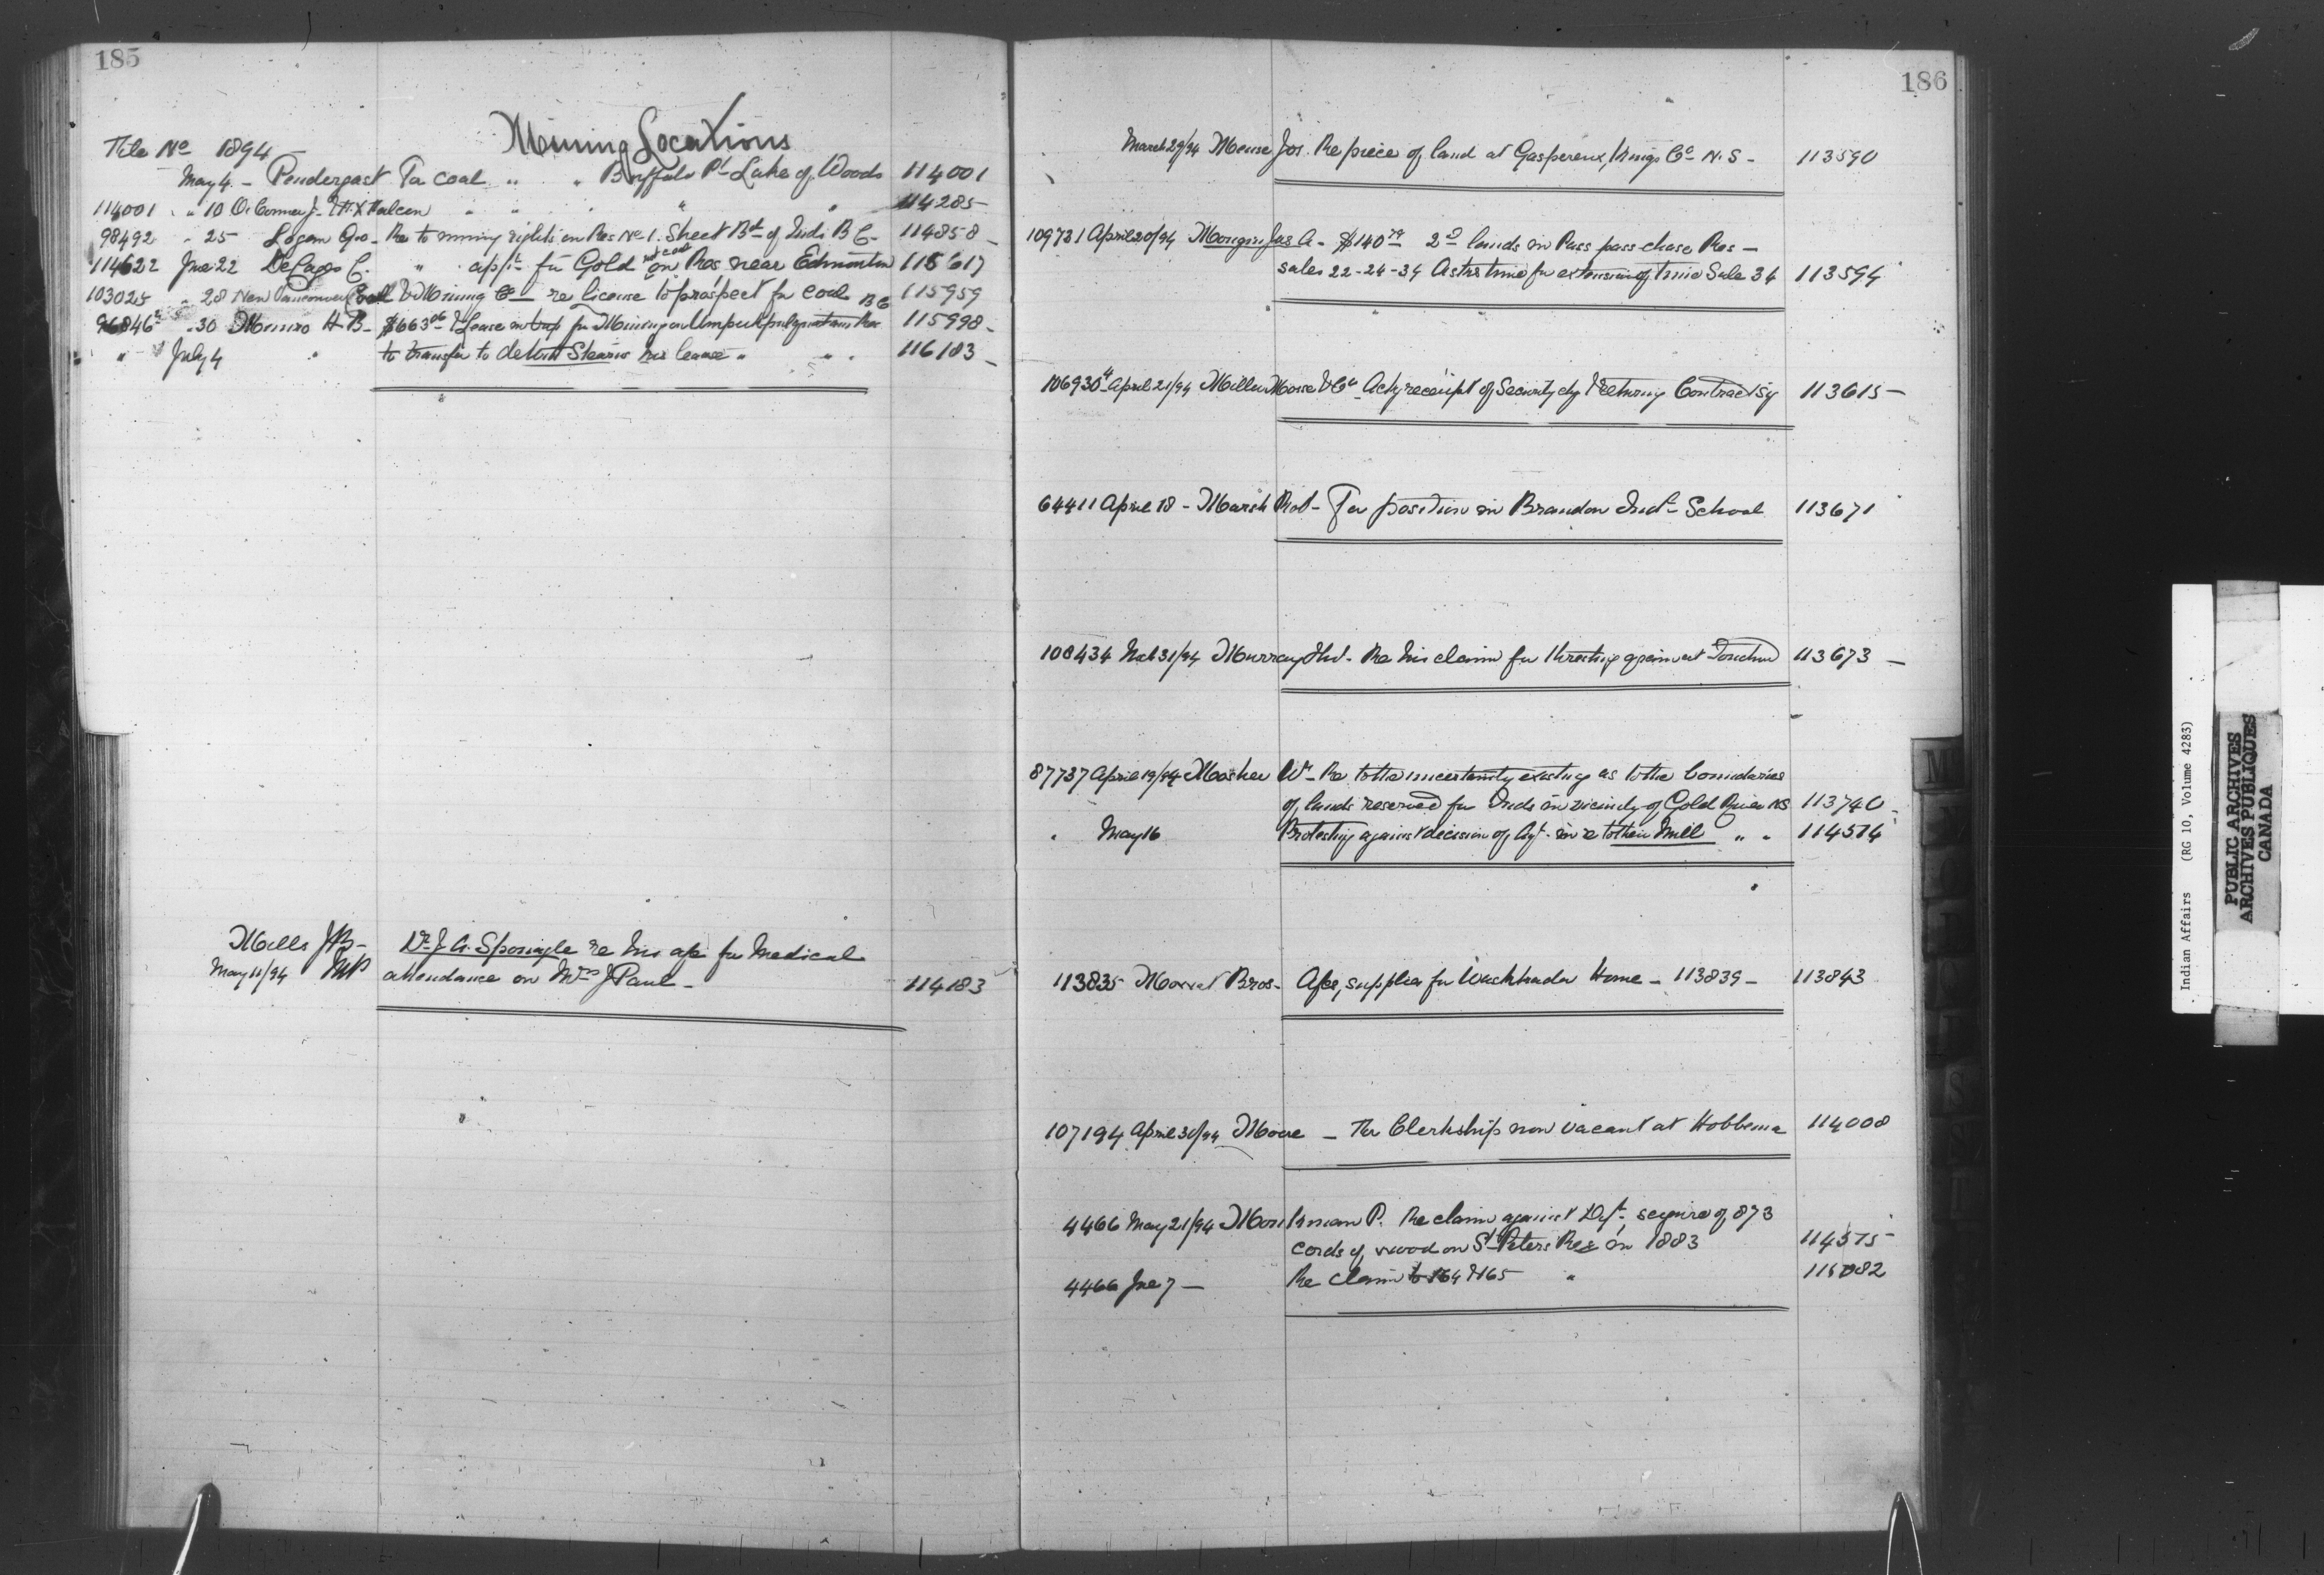 185
Mining Locations
File No 1894
May 4 - Pendergast For coal " " Buffalo Pt Lake of Woods 114001
114001 " " 10 O'Connor J. " " " " 114285
98492 " 25 Logan Geo - Re to mining rights on Res No 1. Sheet Bd of Inds B C - 114858
114622 June 22 DeCages C. " apln for Gold on Res near Edmonton 115617
103025 " 28 New Vancouver Coal & Mining Co re license to prospect for coal B C 115959
96846 " 30 Munro H. B - $663 06 & Lease in trip for Mining on Res 115998
" July 4 " to transfer to Stearns his lease " " " 116183
Mills J B - Dr J. A. Sponagle re his a/c for Medical
May 11/94 MP attendance on Mrs J Paul - 114183
186
March 29/94 Meuse Jos. Re piece of land at Gaspereux, Kings Co N. S - 113590
109731 April 20/94 Mongin Jas A - $140 2nd lands in Pass pass chase Res -
sales 22-24-34 Asks time for extension of time Sale 34 113594
106930 April 21/94 Miller Morse & Co Ackg receipt of Security chq & returning Contract 113615
64411 April 18 - Marsh Rob - For position in Brandon Indl School 113671
108434 Mch 31/94 Murray Thos - Re his claim for threshing grain at Touchwd 113673
87737 April 19/94 Mosher Wm - Re to the uncertainty existing as to the boundaries
of lands reserved for Inds in vicinity of Gold River NS 113740
" May 16 Protesting against decision of Agt - in re to their Mill " " 114514
113835 Morrel Bros - Acs, supplies for Washakada Home - 113839 - 113843
107194 April 30/94 Moore - For Clerkship now vacant at Hobbema 114008
4466 May 21/94 Monkman P. Re claim against Dept, seizure of 873
cords of wood on St Peters Res in 1883 114575
4466 June 7 - Re claim to 164 & 165 " 115082
M
S
Indian Affairs (RG 10, Volume 4283)
PUBLIC ARCHIVES
ARCHIVES PUBLIQUES
CANADA